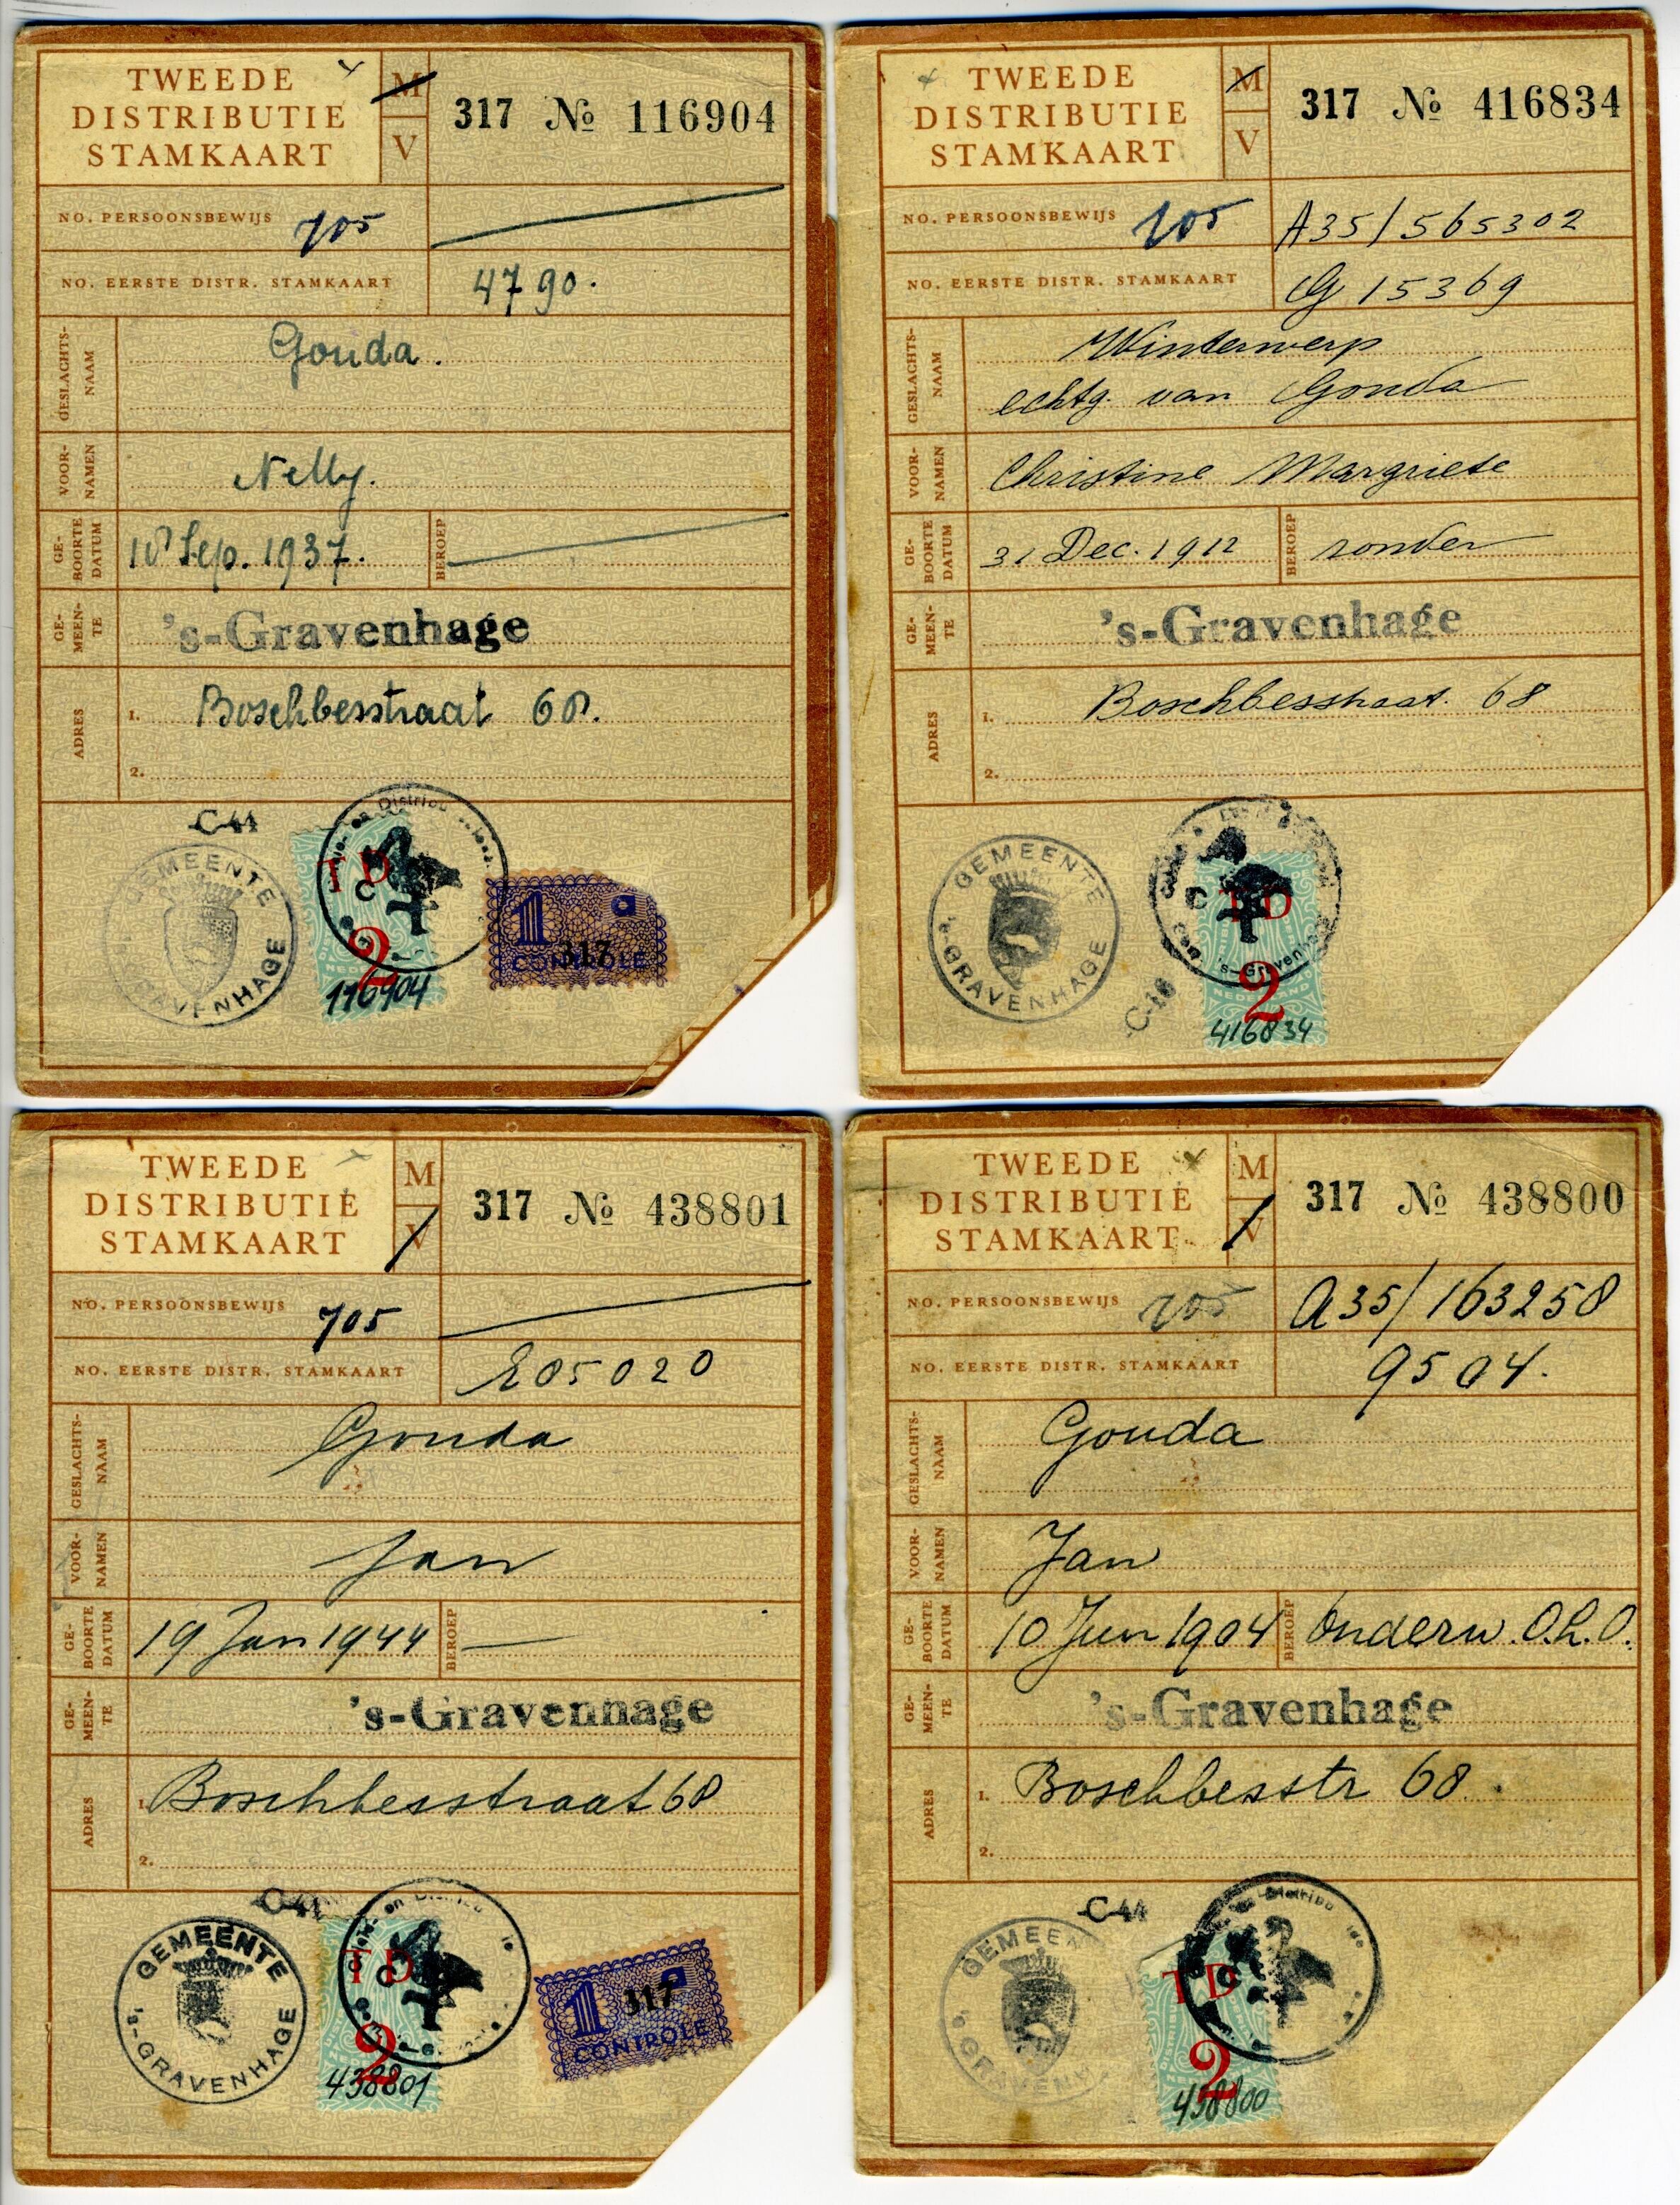 TWEEDE
DISTRIBUTIE
STAMKAART
M
V
317 № 116904
NO. PERSOONSBEWIJS 705
NO. EERSTE DISTR. STAMKAART 4790.
GESLACHTS-
NAAM
Gouda.
VOOR-
NAMEN
Nelly.
GE-
BOORTE
DATUM
18 Sep. 1937.
BEROEP
GE-
MEEN-
TE
's-Gravenhage
ADRES
1. Boschbesstraat 68.
2.
C-44
GEMEENTE
's-GRAVENHAGE
TD
C
2
116904
1 G
317
CONTROLE
TWEEDE
DISTRIBUTIE
STAMKAART
M
V
317 № 416834
NO. PERSOONSBEWIJS 705 A35/565302
NO. EERSTE DISTR. STAMKAART G 15369
GESLACHTS-
NAAM
Winterwerp
echtg. van Gouda
VOOR-
NAMEN
Christine Margriete
GE-
BOORTE
DATUM
31 Dec. 1912
BEROEP
zonder
GE-
MEEN-
TE
's-Gravenhage
ADRES
1. Boschbesstraat. 68
2.
GEMEENTE
's-GRAVENHAGE
C-16
C
TD
's-Gravenhage
NEDERLAND
2
416834
TWEEDE
DISTRIBUTIE
STAMKAART
M
V
317 № 438801
NO. PERSOONSBEWIJS 705
NO. EERSTE DISTR. STAMKAART E05020
GESLACHTS-
NAAM
Gouda
VOOR-
NAMEN
Jan
GE-
BOORTE
DATUM
19 Jan 1944
BEROEP
GE-
MEEN-
TE
's-Gravenhage
ADRES
1. Boschbesstraat 68
2.
C-44
GEMEENTE
's-GRAVENHAGE
TD
C
2
438801
1 G
317
CONTROLE
TWEEDE
DISTRIBUTIE
STAMKAART
M
V
317 № 438800
NO. PERSOONSBEWIJS 705 A35/163258
NO. EERSTE DISTR. STAMKAART 9504.
GESLACHTS-
NAAM
Gouda
VOOR-
NAMEN
Jan
GE-
BOORTE
DATUM
10 Jun 1904
BEROEP
Onderw. O.L.O.
GE-
MEEN-
TE
's-Gravenhage
ADRES
1. Boschbesstr 68.
2.
C-44
GEMEENTE
's-GRAVENHAGE
TD
C
2
438800